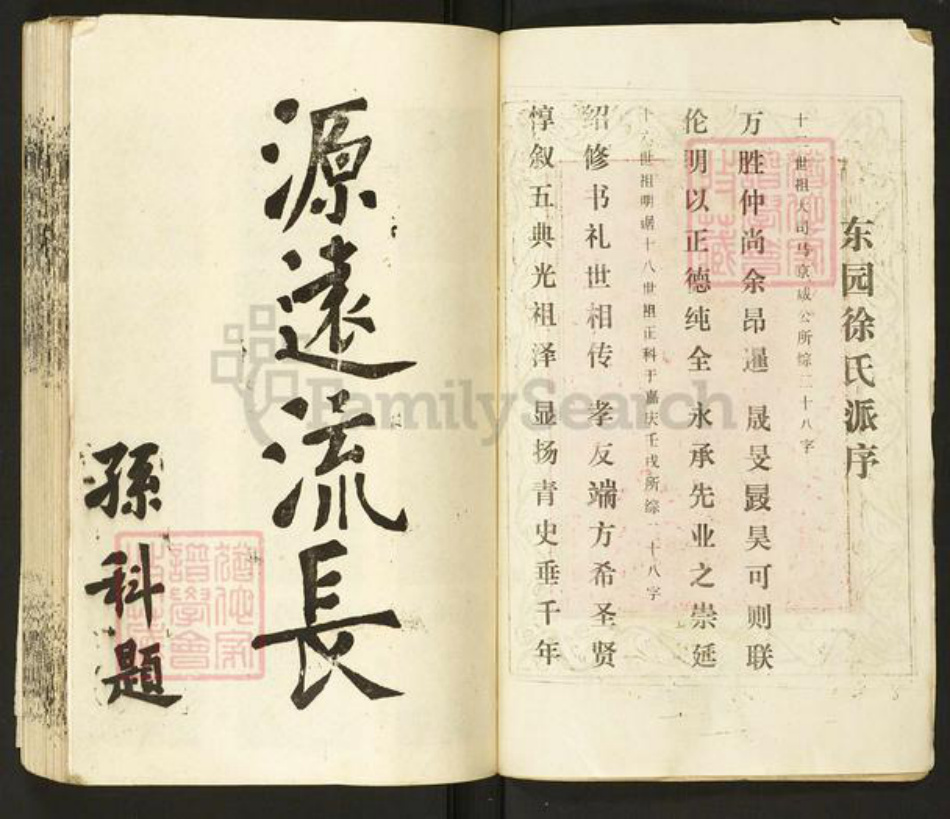 东园徐氏派序
十二世祖大司马京咸公所综二十八字
万胜仲尚余昂暹 晟旻昙昊可则联
伦明以正德纯全 永承先业之崇延
世祖明 十八世祖正科于嘉庆壬戌所综二十八字
绍修书礼世相传 孝友端方希圣贤
惇叙五典光祖泽 显扬青史垂千年
源遠流長
孫科題
FamilySearch